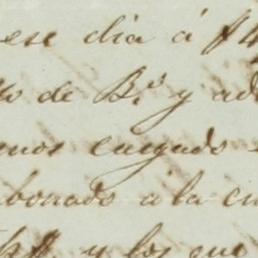 ese dia á $
de B.s y ad
enos cargado
bonado á la cu
y los que